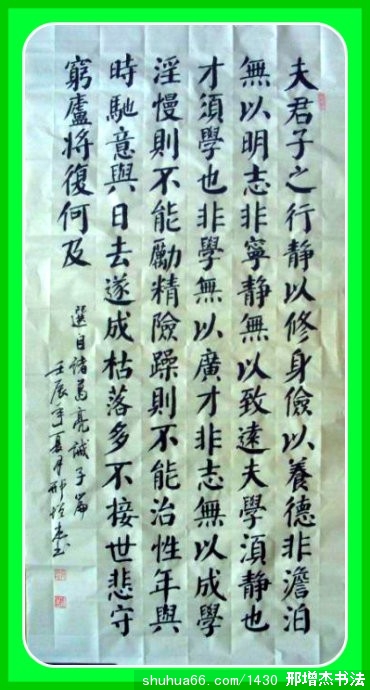 夫君子之行静以修身儉以養德非澹泊
無以明志非寧靜無以致遠夫學須靜也
才須學也非學無以廣才非志無以成學
淫慢則不能勵精險躁則不能治性年與
時馳意與日去遂成枯落多不接世悲守
窮廬將復何及
選自諸葛亮誡子篇
壬辰年夏月邢增杰书
shuhua66.com/1430 邢增杰书法